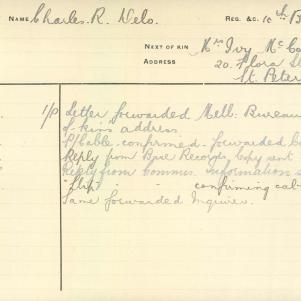 NAME Charles. R. Nelo. REG. &C. 10th B
NEXT OF KIN Mrs Ivy Mc Co
ADDRESS 20. Flora St
St. Peter
1/P Letter forwarded Mell: Bureau
of kin's address
P/Cable confirmed - forwarded
Reply from Base Records, Copy sent
Reply from Commns. Information s
"Slip" - - confirming cab
Same forwarded Inquirer.